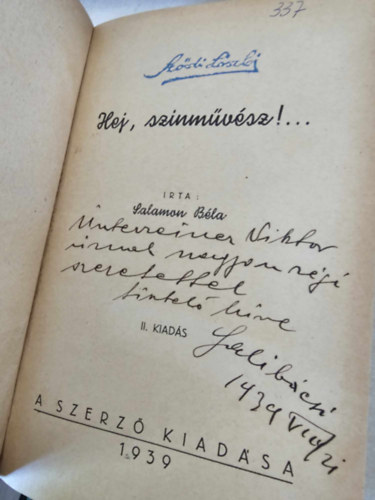 337
László
Hej, szinművész!...
IRTA:
Salamon Béla
Unterreiner Viktor
úrnak nagyon régi
szeretettel
tisztelő híve
II. KIADÁS
Salibácsi
1939
A SZERZŐ KIADÁSA
1939